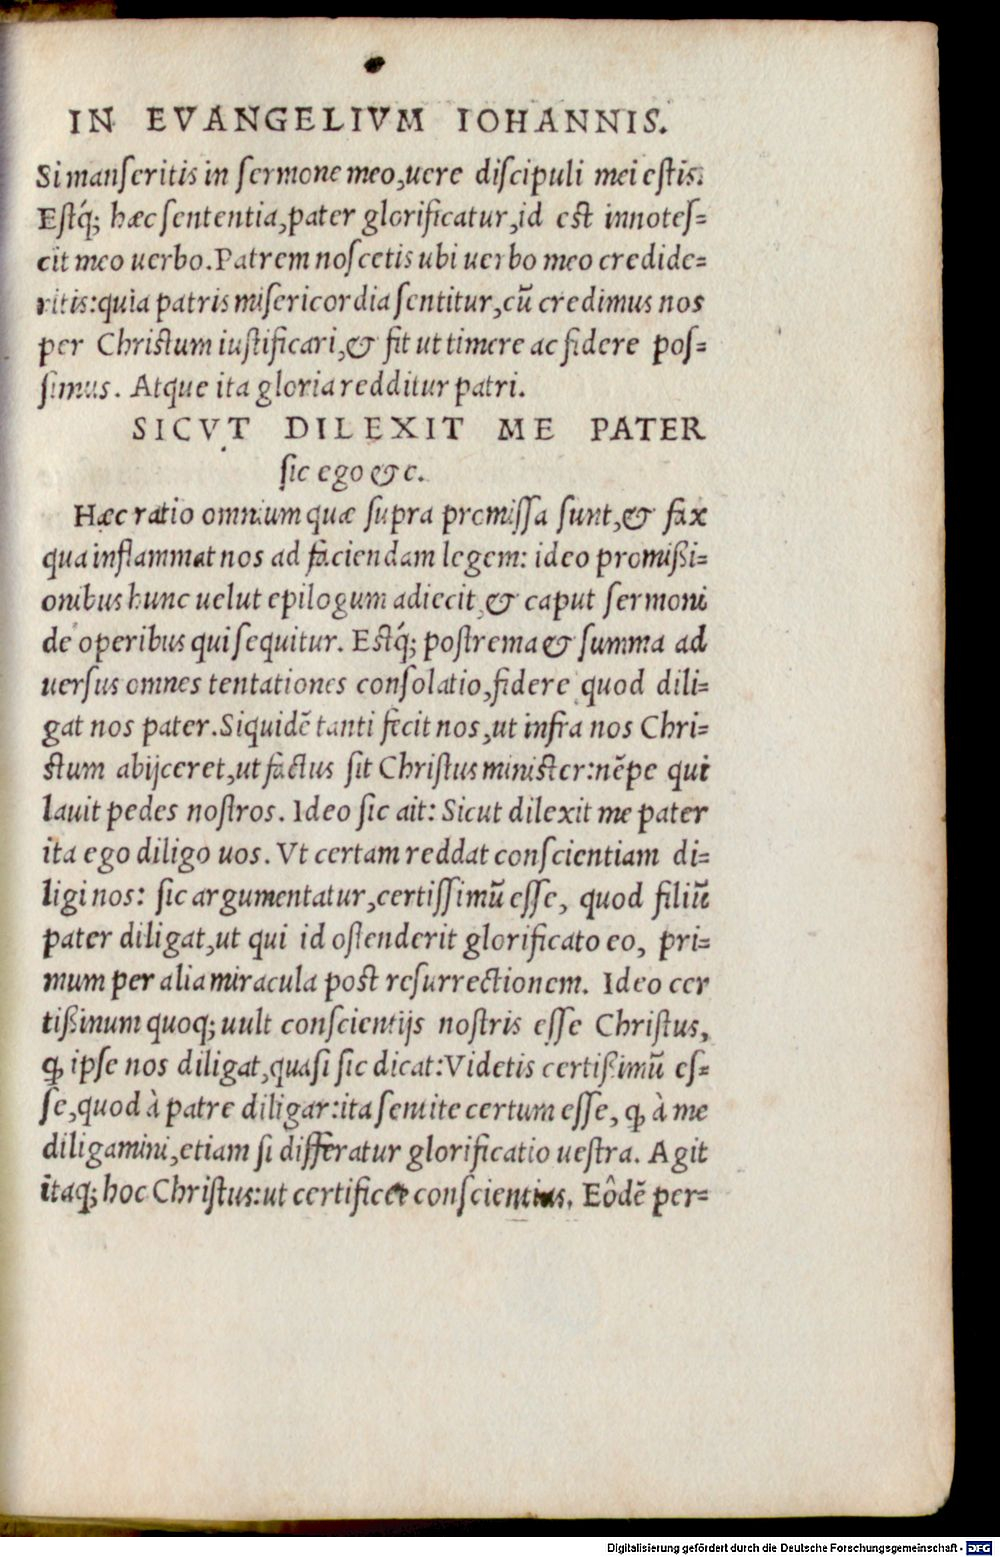 IN EVANGELIVM IOHANNIS.
Si manſeritis in ſermone meo, uere diſcipuli mei eſtis.
Eſtq́; hæc ſententia, pater glorificatur, id eſt innoteſ=
cit meo uerbo. Patrem noſcetis ubi uerbo meo credide=
ritis: quia patris miſericordia ſentitur, cū credimus nos
per Chriſtum iuſtificari, & fit ut timere ac fidere poſ=
ſimus. Atque ita gloria redditur patri.
SICVT DILEXIT ME PATER
ſic ego & c.
Hæc ratio omnium quæ ſupra promiſſa ſunt, & fax
qua inflammat nos ad faciendam legem: ideo promißi=
onibus hunc uelut epilogum adiecit, & caput ſermoni
de operibus qui ſequitur. Eſtq́; poſtrema & ſumma ad
uerſus omnes tentationes conſolatio, fidere quod dili=
gat nos pater. Siquidē tanti fecit nos, ut infra nos Chri=
ſtum abijceret, ut factus ſit Chriſtus miniſter: nēpe qui
lauit pedes noſtros. Ideo ſic ait: Sicut dilexit me pater
ita ego diligo uos. Vt certam reddat conſcientiam di=
ligi nos: ſic argumentatur, certiſſimū eſſe, quod filiū
pater diligat, ut qui id oſtenderit glorificato eo, pri=
mum per alia miracula poſt reſurrectionem. Ideo cer
tißimum quoq; uult conſcientijs noſtris eſſe Chriſtus,
ꝙ ipſe nos diligat, quaſi ſic dicat: Videtis certißimū eſ=
ſe, quod à patre diligar: ita ſentite certum eſſe, ꝙ à me
diligamini, etiam ſi differatur glorificatio ueſtra. Agit
itaq; hoc Chriſtus: ut certificet conſcientias. Eôdē per=
Digitalisierung gefördert durch die Deutsche Forschungsgemeinschaft - DFG